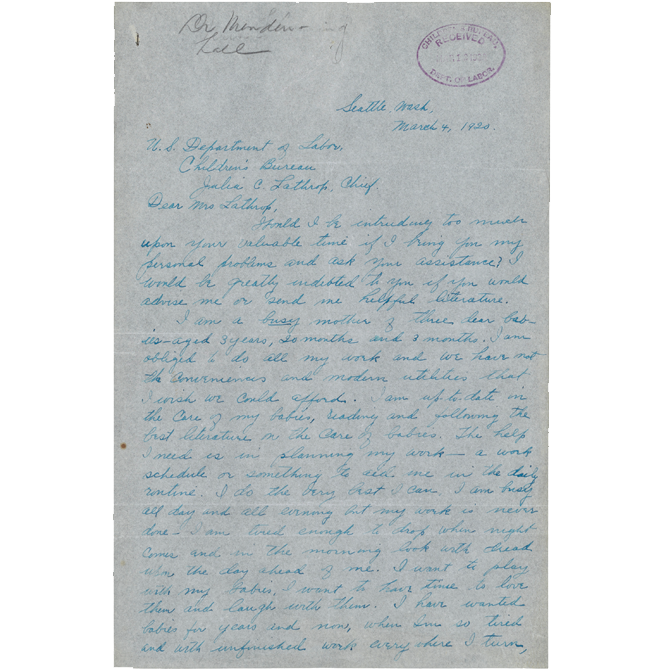 Dr. Menden-
hall
CHILDREN'S BUREAU
RECEIVED
DEPT. OF LABOR
Seattle Wash,
March 4, 1920.
U.S. Department of Labor,
Children's Bureau
Julia C. Lathrop, Chief.
Dear Mrs Lathrop,
Would I be intruding too much
upon your valuable time if I bring you my
personal problems and ask your assistance? I
would be greatly indebted to you if you would
advise me or send me helpful literature.
I am a busy mother of three dear bab-
ies - aged 3 years, 20 months and 3 months. I am
obliged to do all my work and we have not
the conveniences and modern utilities that
I wish we could afford. I am up-to-date in
the care of my babies, reading and following the
best literature on the care of babies. The help
I need is in planning my work - a work
schedule or something to aid me in the daily
routine. I do the very best I can. I am busy
all day and all evening but my work is never
done - I am tired enough to drop when night
comes and in the morning look with dread
upon the day ahead of me. I want to play
with my babies, I want to have time to love
them and laugh with them. I have wanted
babies for years and now, when I'm so tired
and with unfinished work everywhere I turn,